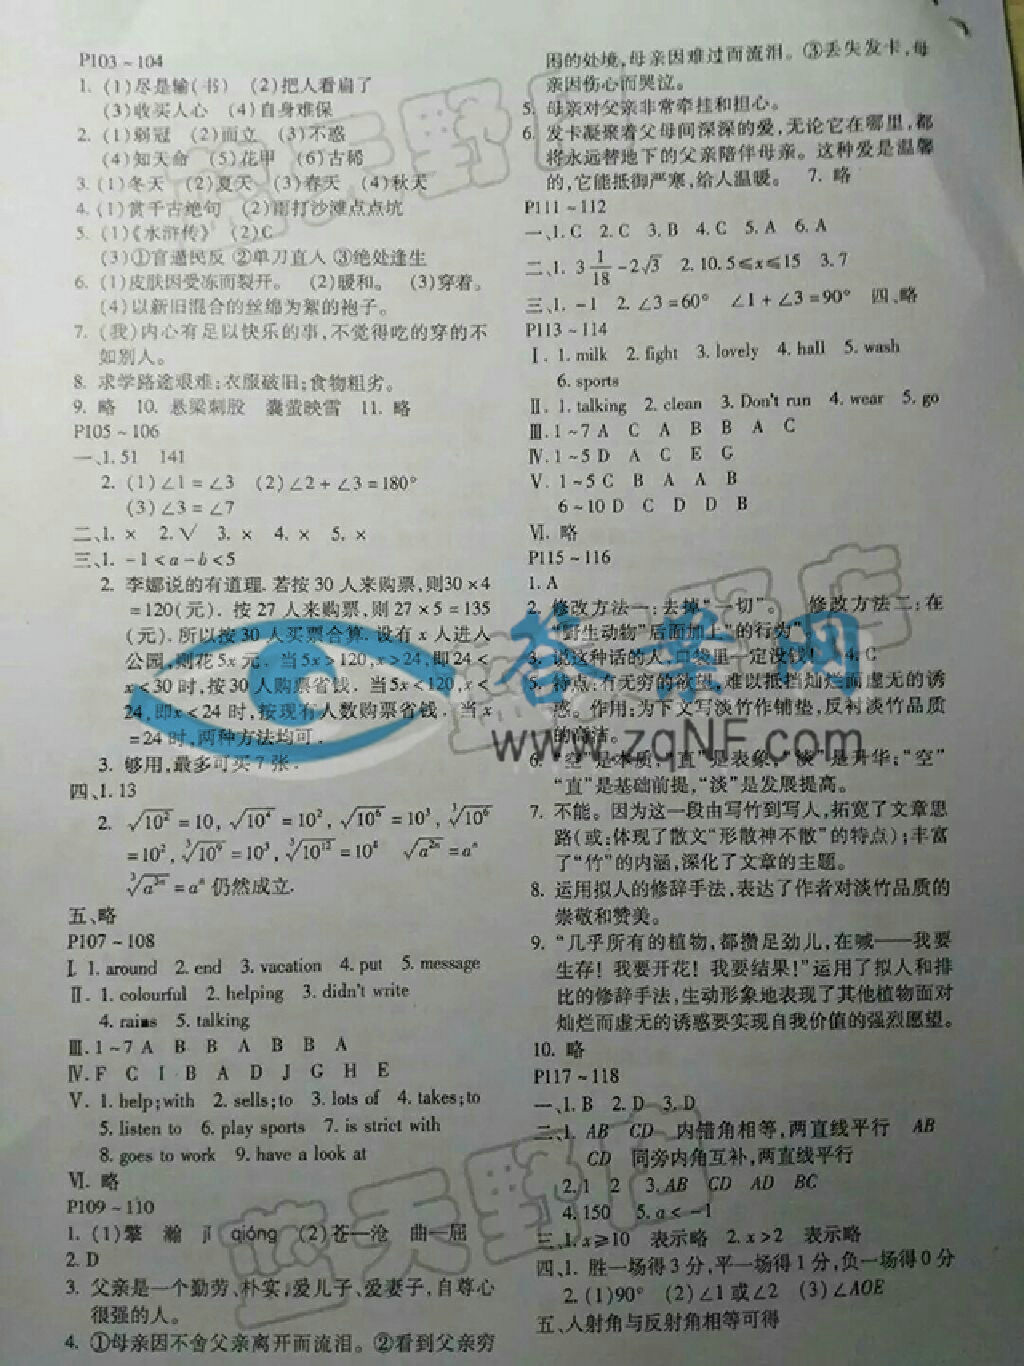 P103~104
1. (1)尽是输(书) (2)把人看扁了
(3)收买人心 (4)自身难保
2. (1)弱冠 (2)而立 (3)不惑
(4)知天命 (5)花甲 (6)古稀
3. (1)冬天 (2)夏天 (3)春天 (4)秋天
4. (1)赏千古绝句 (2)雨打沙滩点点坑
5. (1)《水浒传》 (2)C
(3)①官逼民反 ②单刀直入 ③绝处逢生
6. (1)皮肤因受冻而裂开。 (2)暖和。 (3)穿着。
(4)以新旧混合的丝绵为絮的袍子。
7. (我)内心有足以快乐的事,不觉得吃的穿的不
如别人。
8. 求学路途艰难;衣服破旧;食物粗劣。
9. 略 10. 悬梁刺股 囊萤映雪 11. 略
P105~106
一、1. 51 141
2. (1)∠1=∠3 (2)∠2+∠3=180°
(3)∠3=∠7
二、1. × 2. √ 3. × 4. × 5. ×
三、1. -1<a-b<5
2. 李娜说的有道理. 若按 30 人来购票,则30×4
=120(元). 按 27 人来购票,则 27×5=135
(元). 所以按 30 人买票合算. 设有 x 人进入
公园,则花 5x 元. 当5x>120,x>24,即 24<
x<30 时,按 30 人购票省钱. 当5x<120,x<
24,即x<24 时,按现有人数购票省钱. 当 x
=24 时,两种方法均可.
3. 够用,最多可买 7 张.
四、1. 13
2. √10²=10, √10⁴=10², √10⁶=10³, ∛10⁶
=10², ∛10⁹=10³, ∛10¹²=10⁴ √a²ⁿ=aⁿ
∛a³ⁿ=aⁿ 仍然成立.
五、略
P107~108
Ⅰ. 1. around 2. end 3. vacation 4. put 5. message
Ⅱ. 1. colourful 2. helping 3. didn't write
4. rains 5. talking
Ⅲ. 1~7 A B B A B B A
Ⅳ. F C I B A D J G H E
Ⅴ. 1. help;with 2. sells;to 3. lots of 4. takes;to
5. listen to 6. play sports 7. is strict with
8. goes to work 9. have a look at
Ⅵ. 略
P109~110
1. (1)擎 瀚 jī qióng (2)苍—沧 曲—屈
2. D
3. 父亲是一个勤劳、朴实,爱儿子、爱妻子,自尊心
很强的人。
4. ①母亲因不舍父亲离开而流泪。②看到父亲穷
困的处境,母亲因难过而流泪。③丢失发卡,母
亲因伤心而哭泣。
5. 母亲对父亲非常牵挂和担心。
6. 发卡凝聚着父母间深深的爱,无论它在哪里,都
将永远替地下的父亲陪伴母亲。这种爱是温馨
的,它能抵御严寒,给人温暖。 7. 略
P111~112
一、1. C 2. C 3. B 4. C 5. A 6. A
二、1. 3 1/18 -2√3 2. 10.5≤x≤15 3. 7
三、1. -1 2. ∠3=60° ∠1+∠3=90° 四、略
P113~114
Ⅰ. 1. milk 2. fight 3. lovely 4. hall 5. wash
6. sports
Ⅱ. 1. talking 2. clean 3. Don't run 4. wear 5. go
Ⅲ. 1~7 A C A B B A C
Ⅳ. 1~5 D A C E G
Ⅴ. 1~5 C B A A B
6~10 D C D D B
Ⅵ. 略
P115~116
1. A
2. 修改方法一:去掉“一切”。 修改方法二:在
“野生动物”后面加上“的行为”。
3. 说这种话的人,口袋里一定没钱! 4. C
5. 特点:有无穷的欲望,难以抵挡灿烂而虚无的诱
惑。作用:为下文写淡竹作铺垫,反衬淡竹品质
的高洁。
6. “空”是本质,“直”是表象,“淡”是升华;“空”
“直”是基础前提,“淡”是发展提高。
7. 不能。因为这一段由写竹到写人,拓宽了文章思
路(或:体现了散文“形散神不散”的特点);丰富
了“竹”的内涵,深化了文章的主题。
8. 运用拟人的修辞手法,表达了作者对淡竹品质的
崇敬和赞美。
9. “几乎所有的植物,都攒足劲儿,在喊——我要
生存! 我要开花! 我要结果!”运用了拟人和排
比的修辞手法,生动形象地表现了其他植物面对
灿烂而虚无的诱惑要实现自我价值的强烈愿望。
10. 略
P117~118
一、1. B 2. D 3. D
二、1. AB CD 内错角相等,两直线平行 AB
CD 同旁内角互补,两直线平行
2. 1 2 3. AB CD AD BC
4. 150 5. a<-1
三、1. x≥10 表示略 2. x>2 表示略
四、1. 胜一场得 3 分,平一场得 1 分,负一场得 0 分
2. (1)90° (2)∠1或∠2 (3)∠AOE
五、入射角与反射角相等可得
答案网
www.zqNF.com
蓝天野店
蓝天野店
蓝天野店